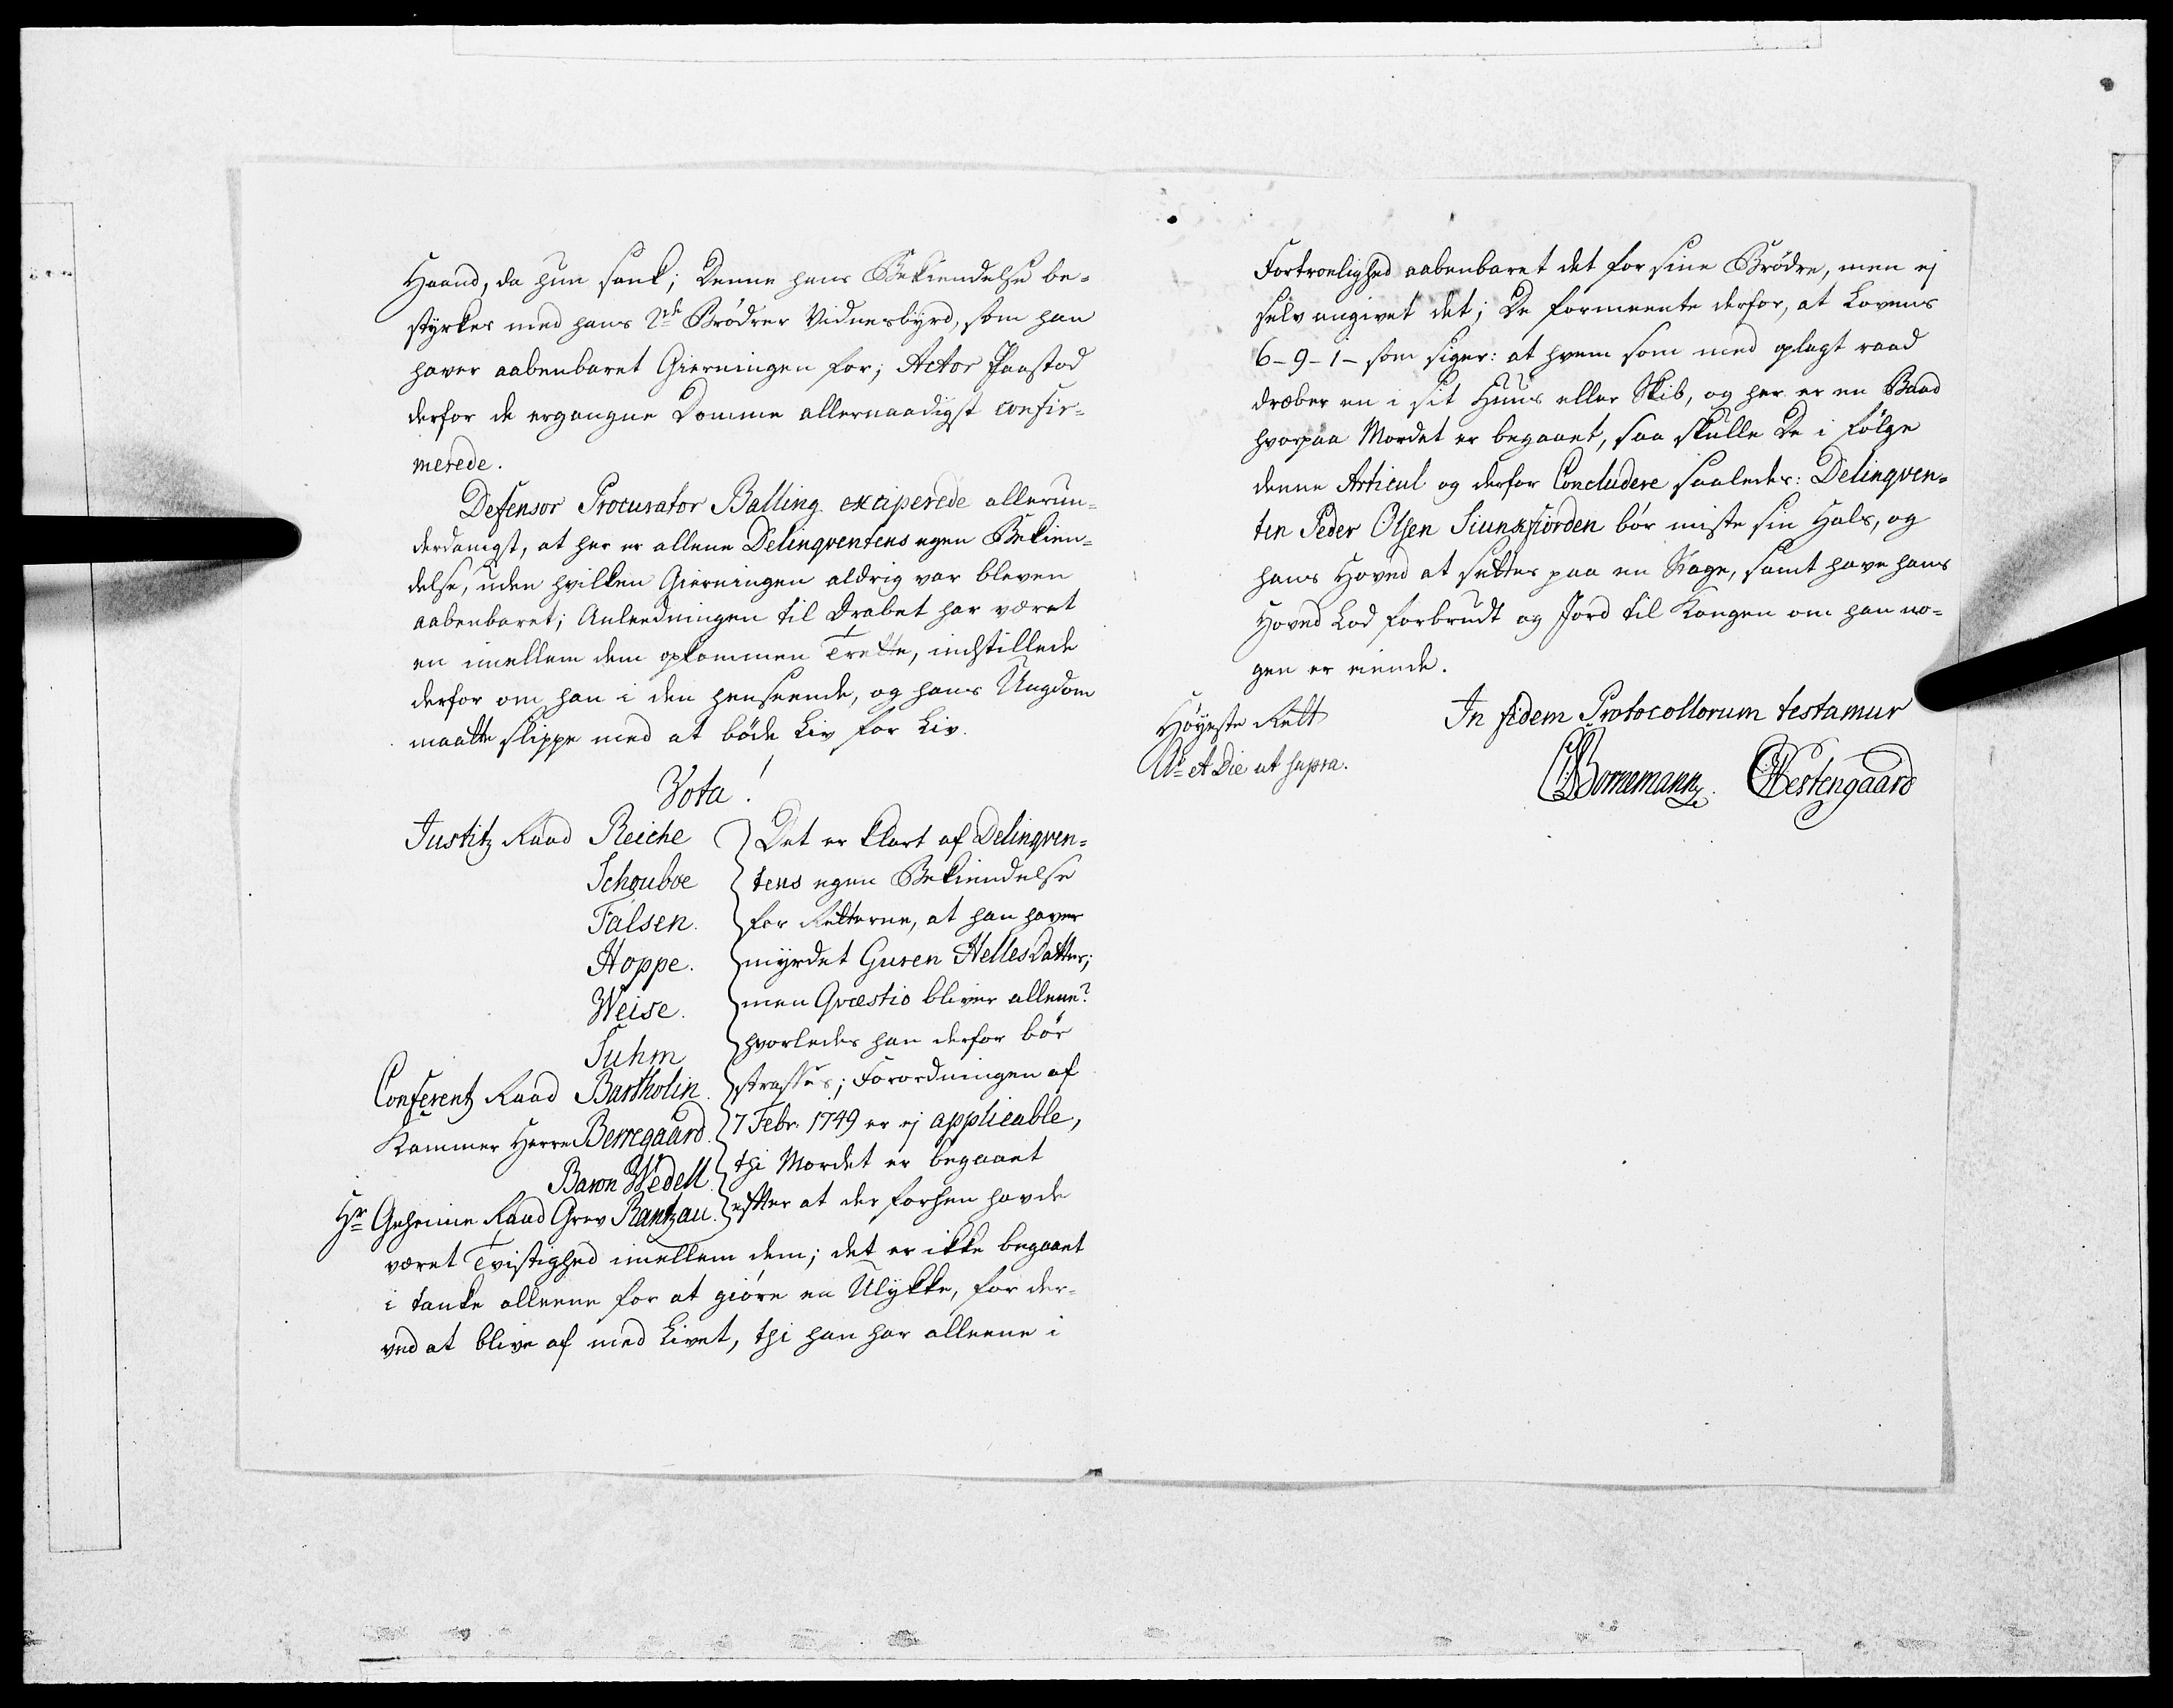 Haand, da hun sank; Denne hans Bekiendelse be-
styrkes med hans 2de Brödres Vidnesbyrd, som han
haver aabenbaret Gierningen for; Actor Paastod
derfor de ergangne Domme allernaadigst confir-
merede.
Defensor Procurator Balling exciperede allerun-
derdanigst, at her er allene Delinqventens egen Bekien-
delse, uden hvilken Gierningen aldrig var bleven
aabenbaret; Anleedningen til Drabet har været
en imellem dem opkommen Trette, indstillede
derfor om han i den henseende, og hans Ungdom
maatte slippe med at böde Liv for Liv.
Vota!
Justitz Raad Reiche
Schouboe
Falsen.
Hoppe.
Weise.
Suhm
Conferentz Raad Bartholin.
Kammer Herre Berregaard.
Baron Wedell
Hr Geheime Raad Grev Rantzau.
Det er klart af Delinqven-
tens egen Bekiendelse
for Retterne, at han haver
myrdet Guren HellesDatter;
men Qvæstio bliver allene?
hvorledes han derfor bör
straffes; Forordningen af
7 Febr. 1749 er ej applicable,
thi Mordet er begaaet
effter at der forhen havde
været Tvistighed imellem dem; det er ikke begaaet
i tanke alleene for at giöre en Ulykke, for der-
ved at blive af med Livet, thi han har alleene i
Fortroelighed aabenbaret det for sine Brödre, men ej
selv angivet det; De formeente derfor, at Lovens
6-9-1- som siger: at hvem som med oplagt raad
dræber en i sit Huus eller Skib, og her er en Baad
hvorpaa Mordet er begaaet, saa skulle De i fölge
denne Articul og derfor Concludere saaledes: Delinqven-
ten Peder Olsen Siunkfiorden bör miste sin Hals, og
hans Hoved at settes paa en Stage, samt have hans
Hoved Lod forbrudt og Jord til Kongen om han no-
gen er eiende.
Höyeste Rett
Ao et Die ut supra.
In fidem Protocollorum testamur
Bornemann. Westengaard